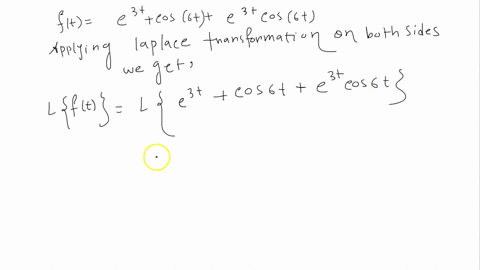 f(t) = e^3t + cos(6t) + e^3t cos(6t)
Applying laplace transformation on both sides
we get,
L{f(t)} = L{e^3t + cos6t + e^3t cos6t}